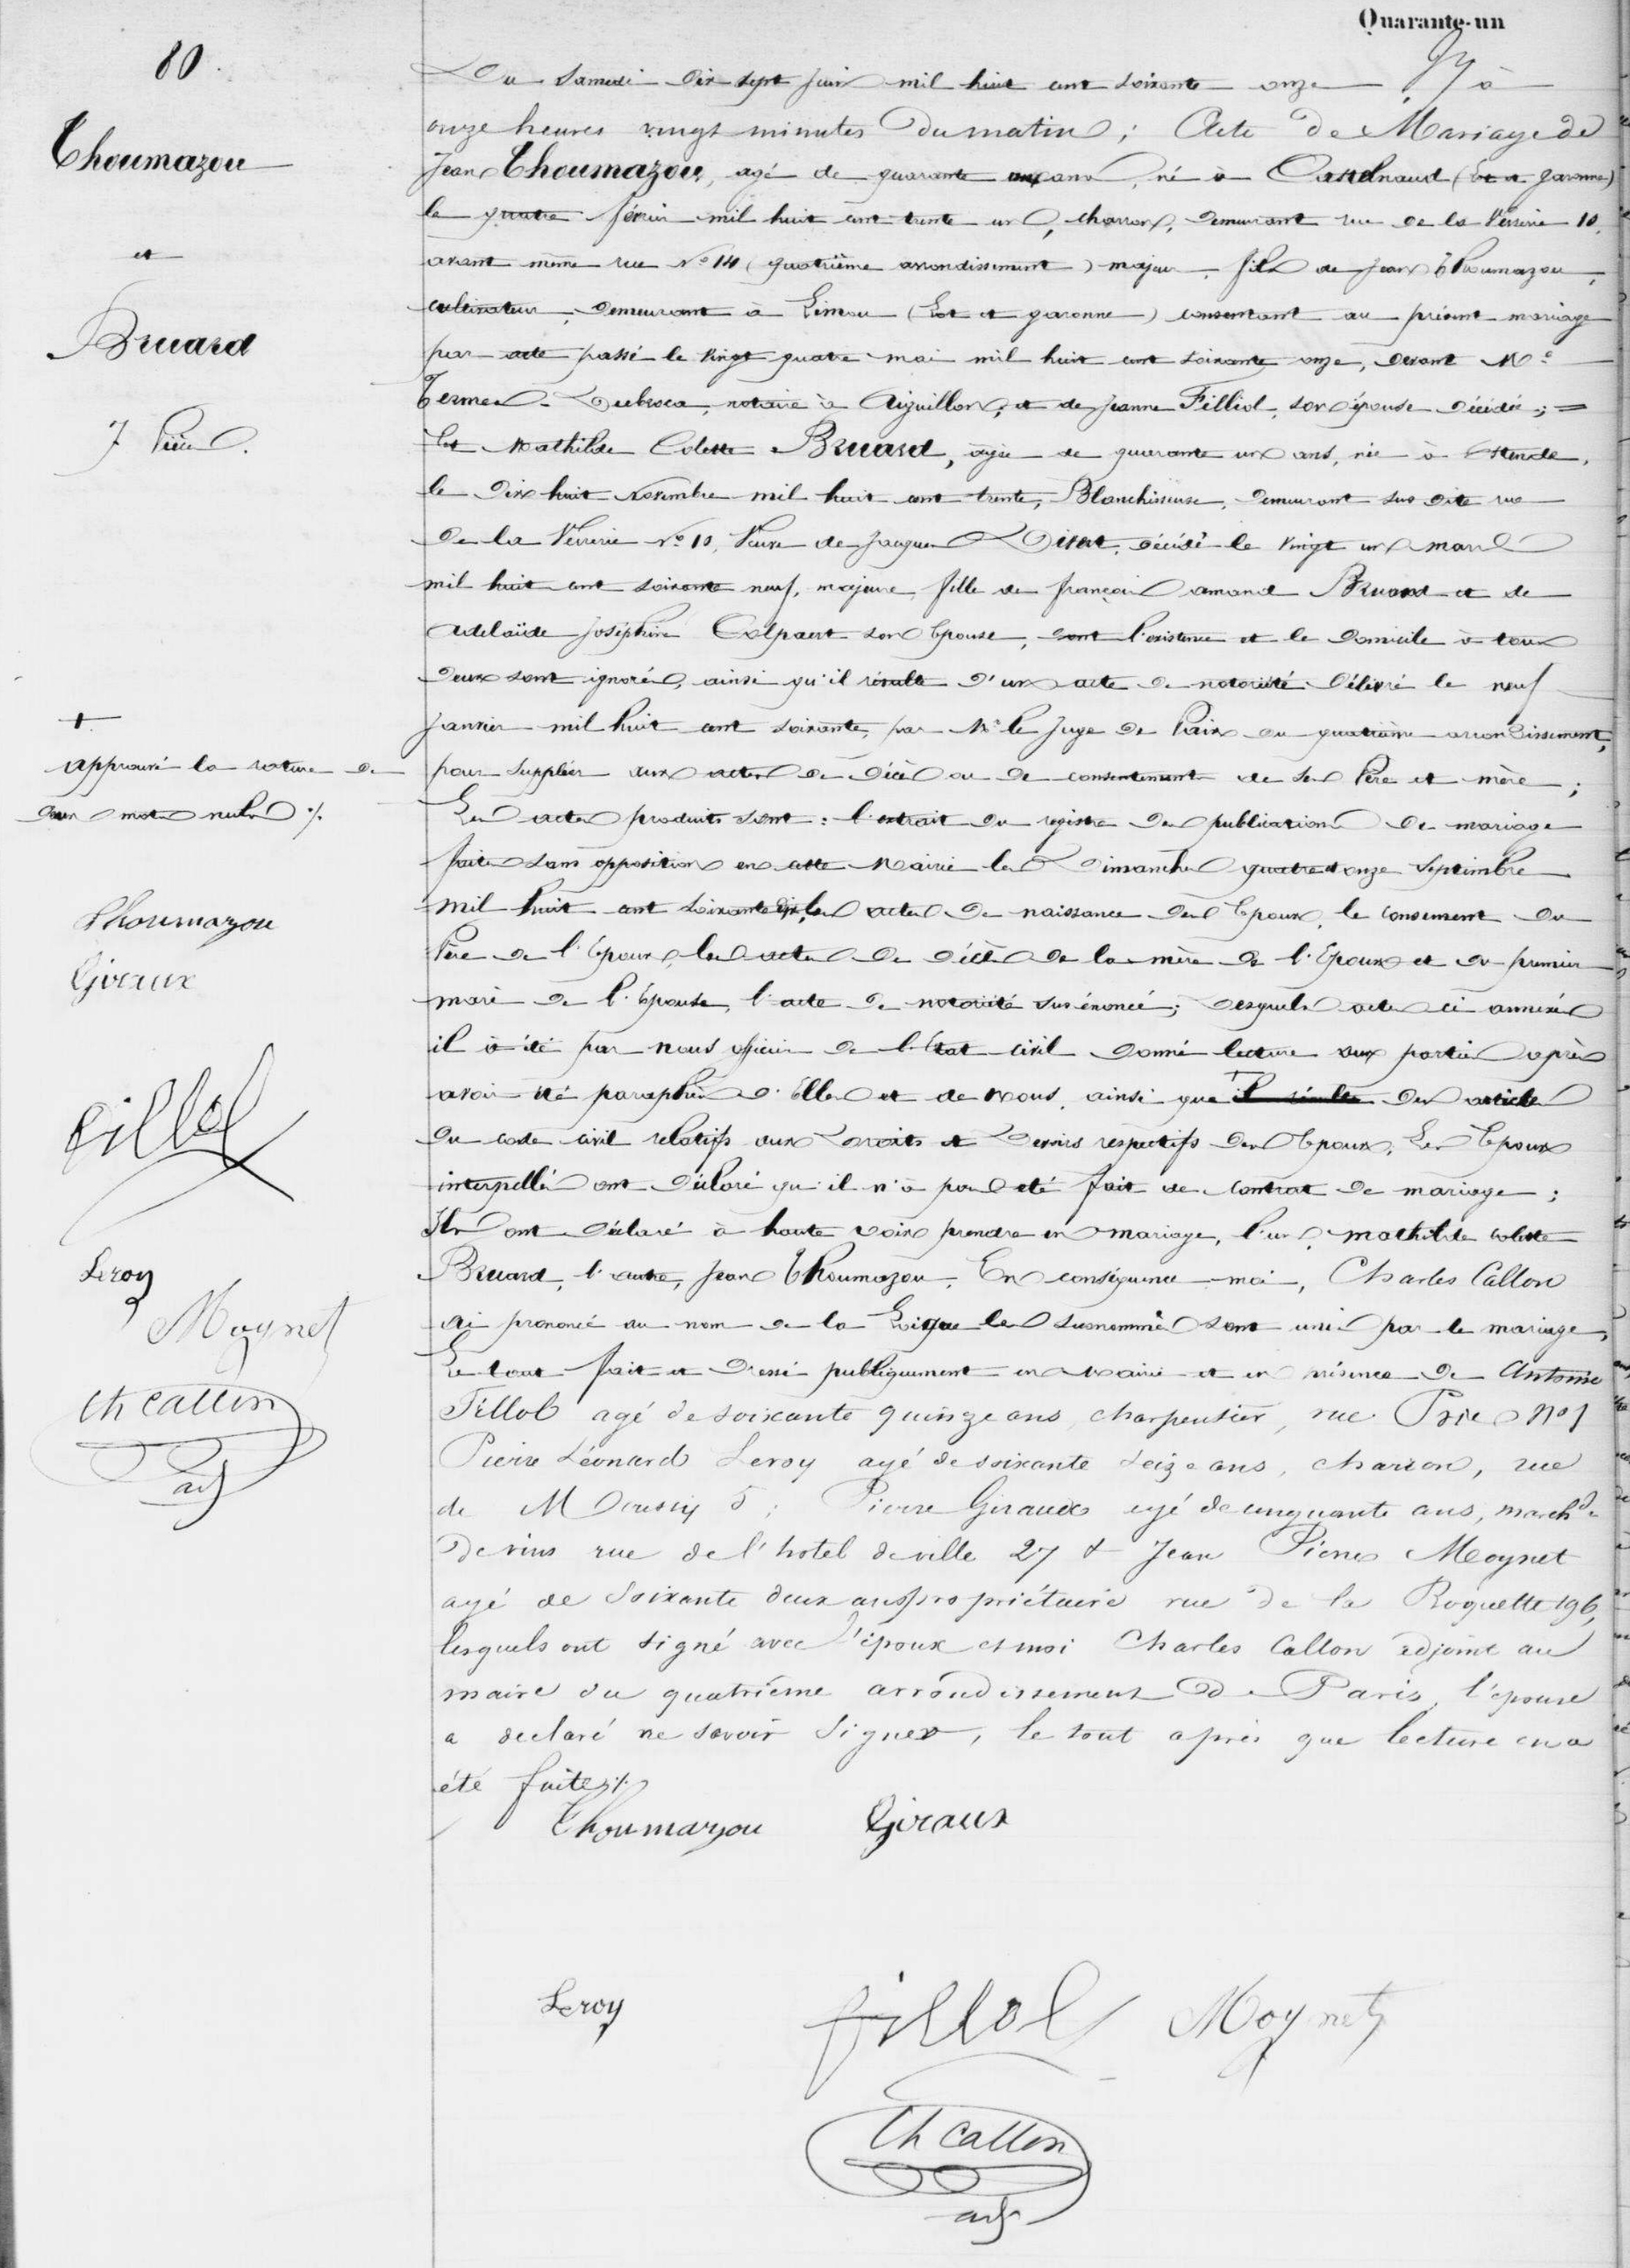 Quarante-un
80.
Thoumazou
et
Bruard
7 Pièces.
Du Samedi dix sept Juin mil huit cent soixante onze à
onze heures vingt minutes du matin; Acte de Mariage de
Jean Thoumazou, agé de quarante ans, né à Castelnaud (Lot et garonne)
le quatre février mil huit cent trente un, charron, demeurant rue de la Verrerie 10,
avant même rue No 14 (quatrième arrondissement) majeur, fils de Jean Thoumazou,
cultivateur, demeurant à (Lot et garonne) consentant au présent mariage
par acte passé le vingt quatre mai mil huit cent soixante onze, devant Me
Termes notaire à Aiguillon, et de Jeanne Filliol, son épouse décédée; =
Et Mathilde Colette Bruard, agée de quarante un ans, née à Ostende,
le dix huit Novembre mil huit cent trente, Blanchisseuse, demeurant sus dite rue
de la Verrerie No 10, Veuve de Jacques décédé le vingt un mars
mil huit cent soixante neuf, majeure, fille de françois amand Bruard et de
Adelaïde Joséphine Colpaert son Epouse, dont l'existence et le domicile à tous
deux sont ignorés, ainsi qu'il résulte d'un acte de notoriété délivré le neuf
Janvier mil huit cent soixante, par Mr le Juge de Paix du quatrième arrondissement,
pour suppléer aux actes de décès ou de consentement de ses Père et mère;
Les actes produits sont: l'extrait du registre des publications de mariage
faites sans opposition en cette Mairie les Dimanches quatre et onze Septembre
mil huit cent soixante dix, les actes de naissance des Epoux, le consement du
Père de l'Epoux, les actes de décès de la mère de l'Epoux et du premier
mari de l'Epouse, l'acte de notoriété susénoncé; desquels actes ci annexés
il à été par nous officier de l'Etat civil donné lecture aux parties après
avoir été paraphés d'Elles et de nous, ainsi que + il résulte des articles
du code civil relatifs aux Droits et Devoirs respectifs des Epoux. Les Epoux
interpellés ont déclaré qu'il n'à pas eté fait de contrat de mariage;
Ils ont déclaré à haute voix prendre en mariage, l'un, mathilde colette
Bruard, l'autre, Jean Thoumazou. En conséquence moi, Charles Callon
ai prononcé au nom de la Loi que les susnommés sont unis par le mariage,
Le tout fait et dressé publiquement en Mairie et en présence de Antoine
Fillol agé de soixante quinze ans, charpentier, rue No 1
Pierre Léonard Leroy agé de soixante seize ans, charron, rue
de Moussy 5; Pierre Giraux agé de cinquante ans, marchd
de vins rue de l'hotel de ville 27 & Jean Pierre Moynet
agé de soixante deux ans propriétaire rue de la Roquette 196,
lesquels ont signé avec l'époux et moi Charles Callon adjoint au
maire du quatrième arrondissement de Paris, l'épouse
a declaré ne savoir signer, le tout après que lecture en a
été faite ./.
Thoumazou Giraux
Leroy fillol Moynet
Ch Callon
adj
+
approuvé la rature de
deux mots nuls ./.
Thoumazou
Giraux
fillol
Leroy
Moynet
Ch Callon
adj